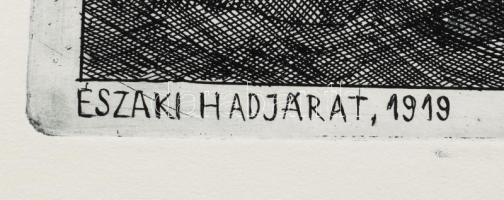 ÉSZAKI HADJÁRAT, 1919